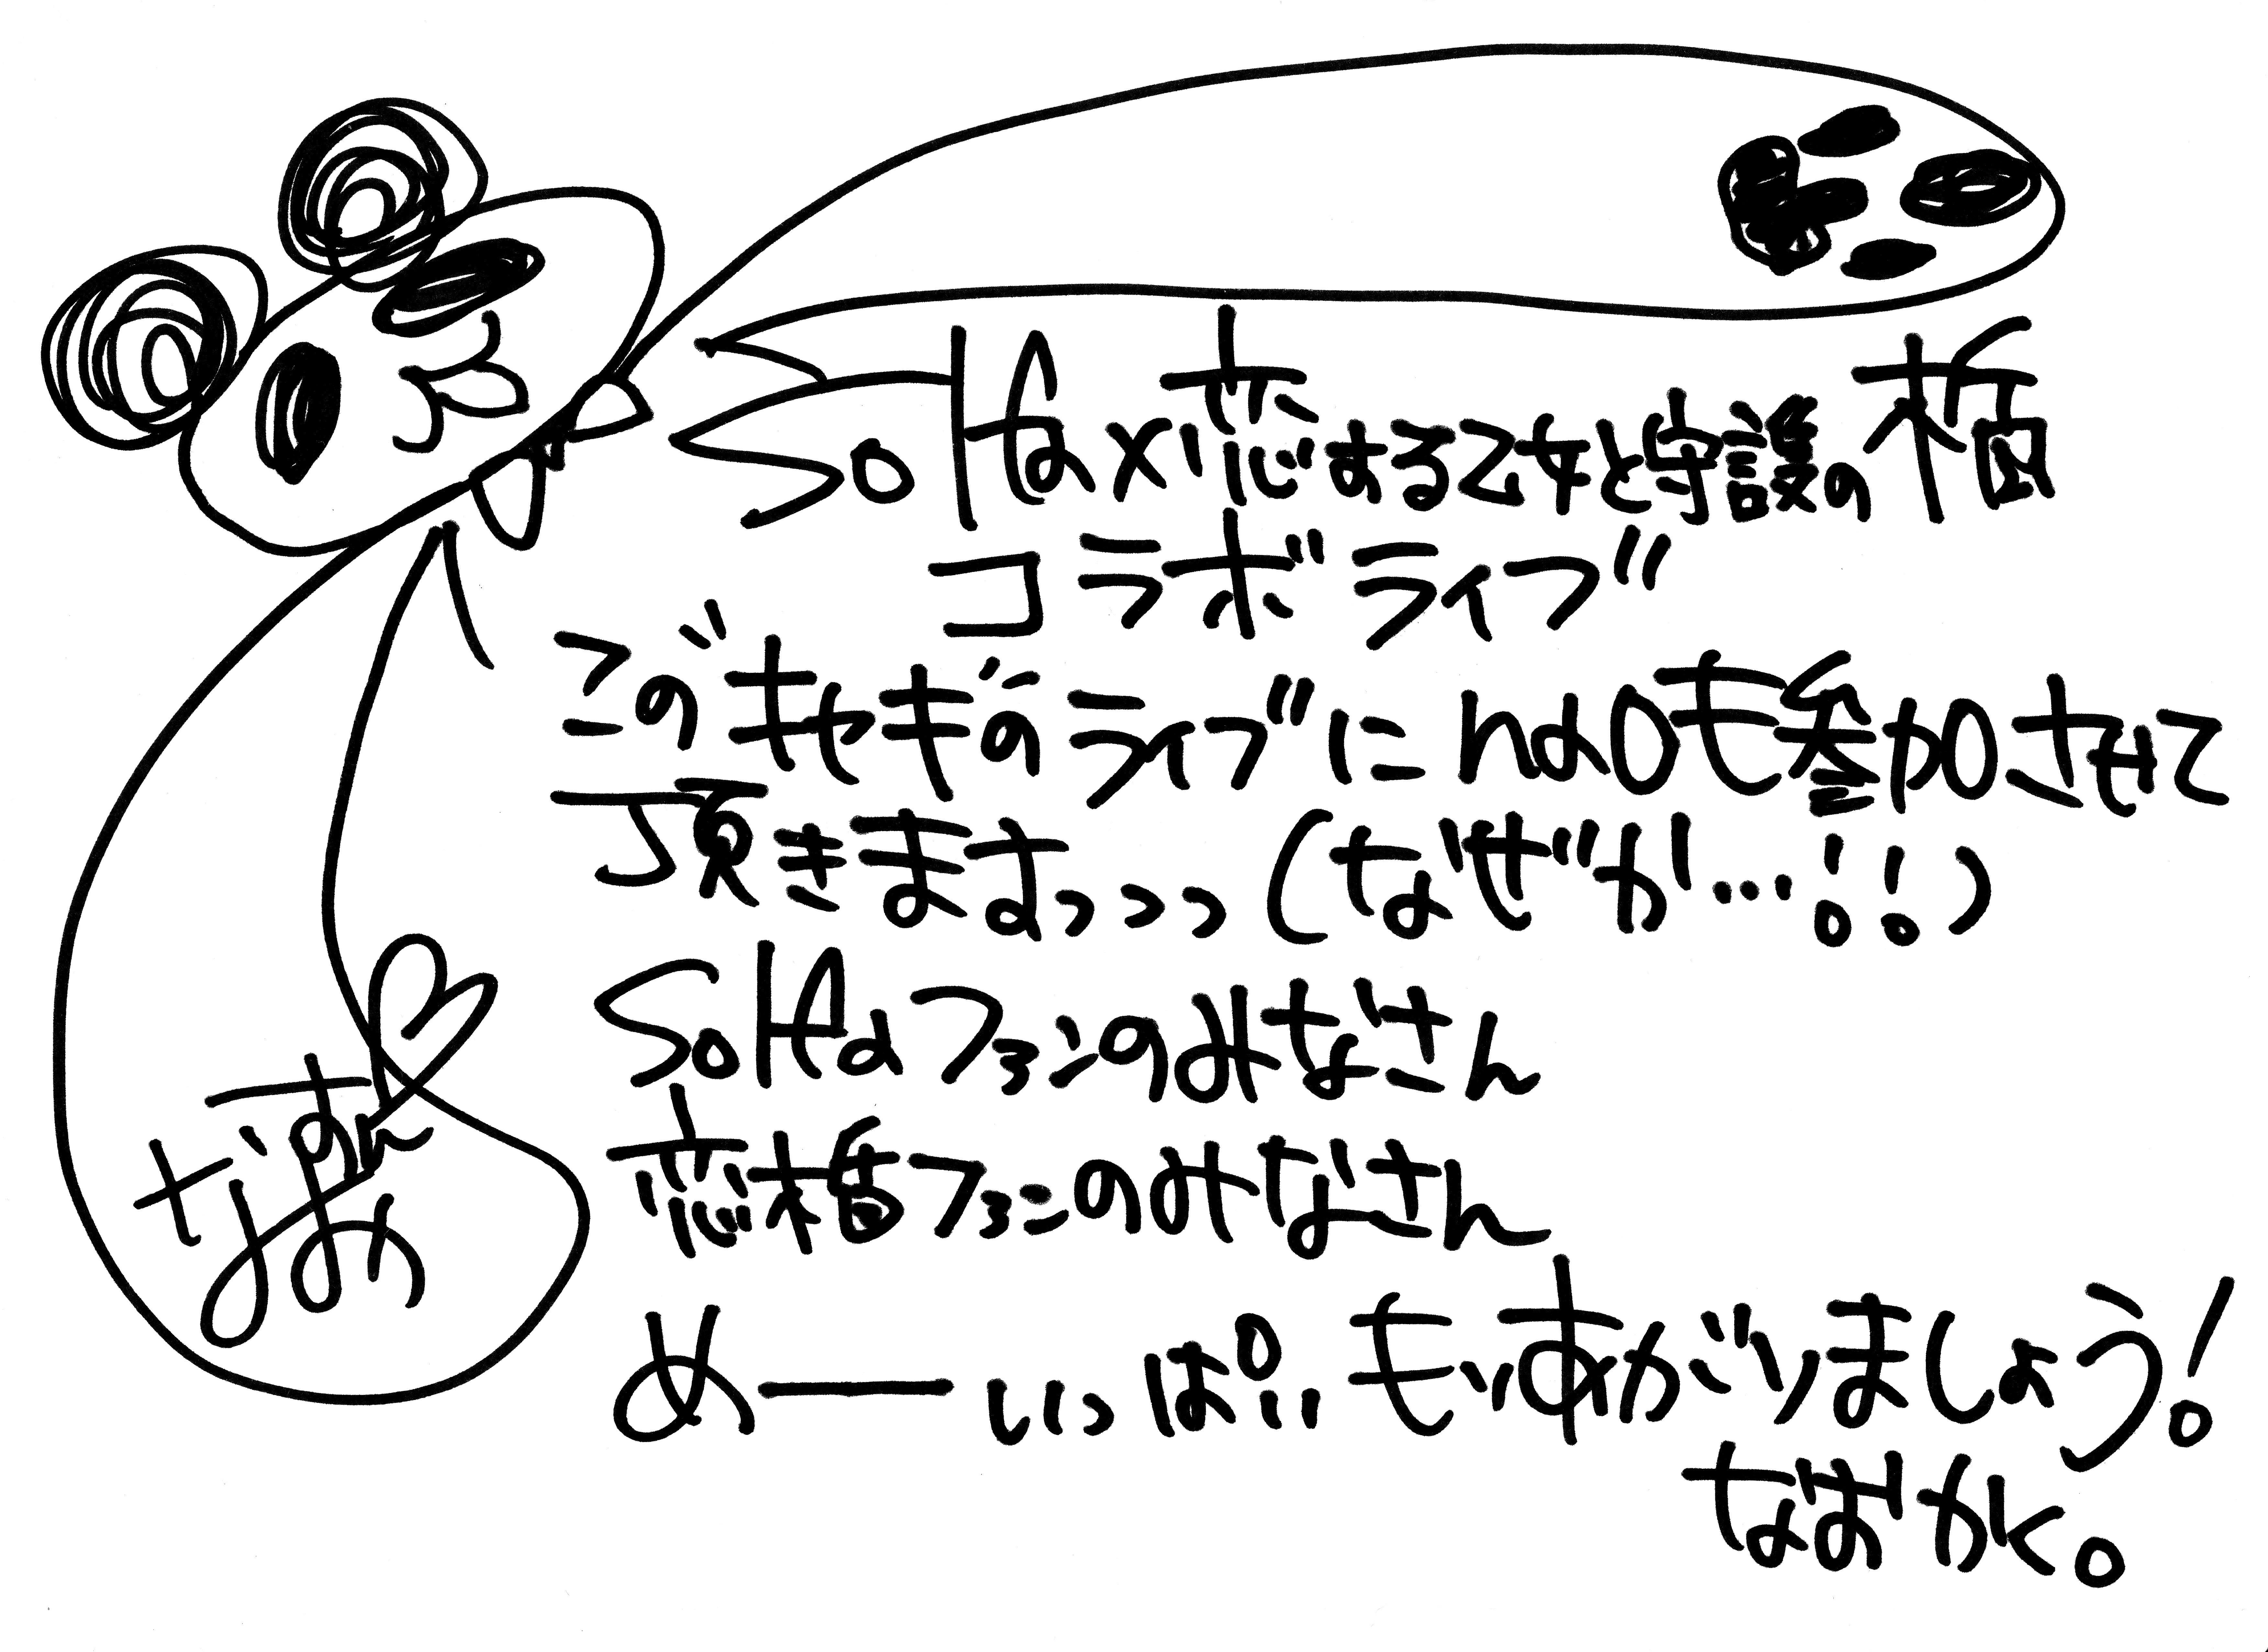 SoHa×恋する乙女と守護の楯
コラボライブ
このギャギのライブにnaoも参加させて
頂きますっっっ(なぜか…!!)
SoHaファンのみなさん
恋楯ファンのみなさん
めーーいっぱいもりあがりましょう!
なおかko